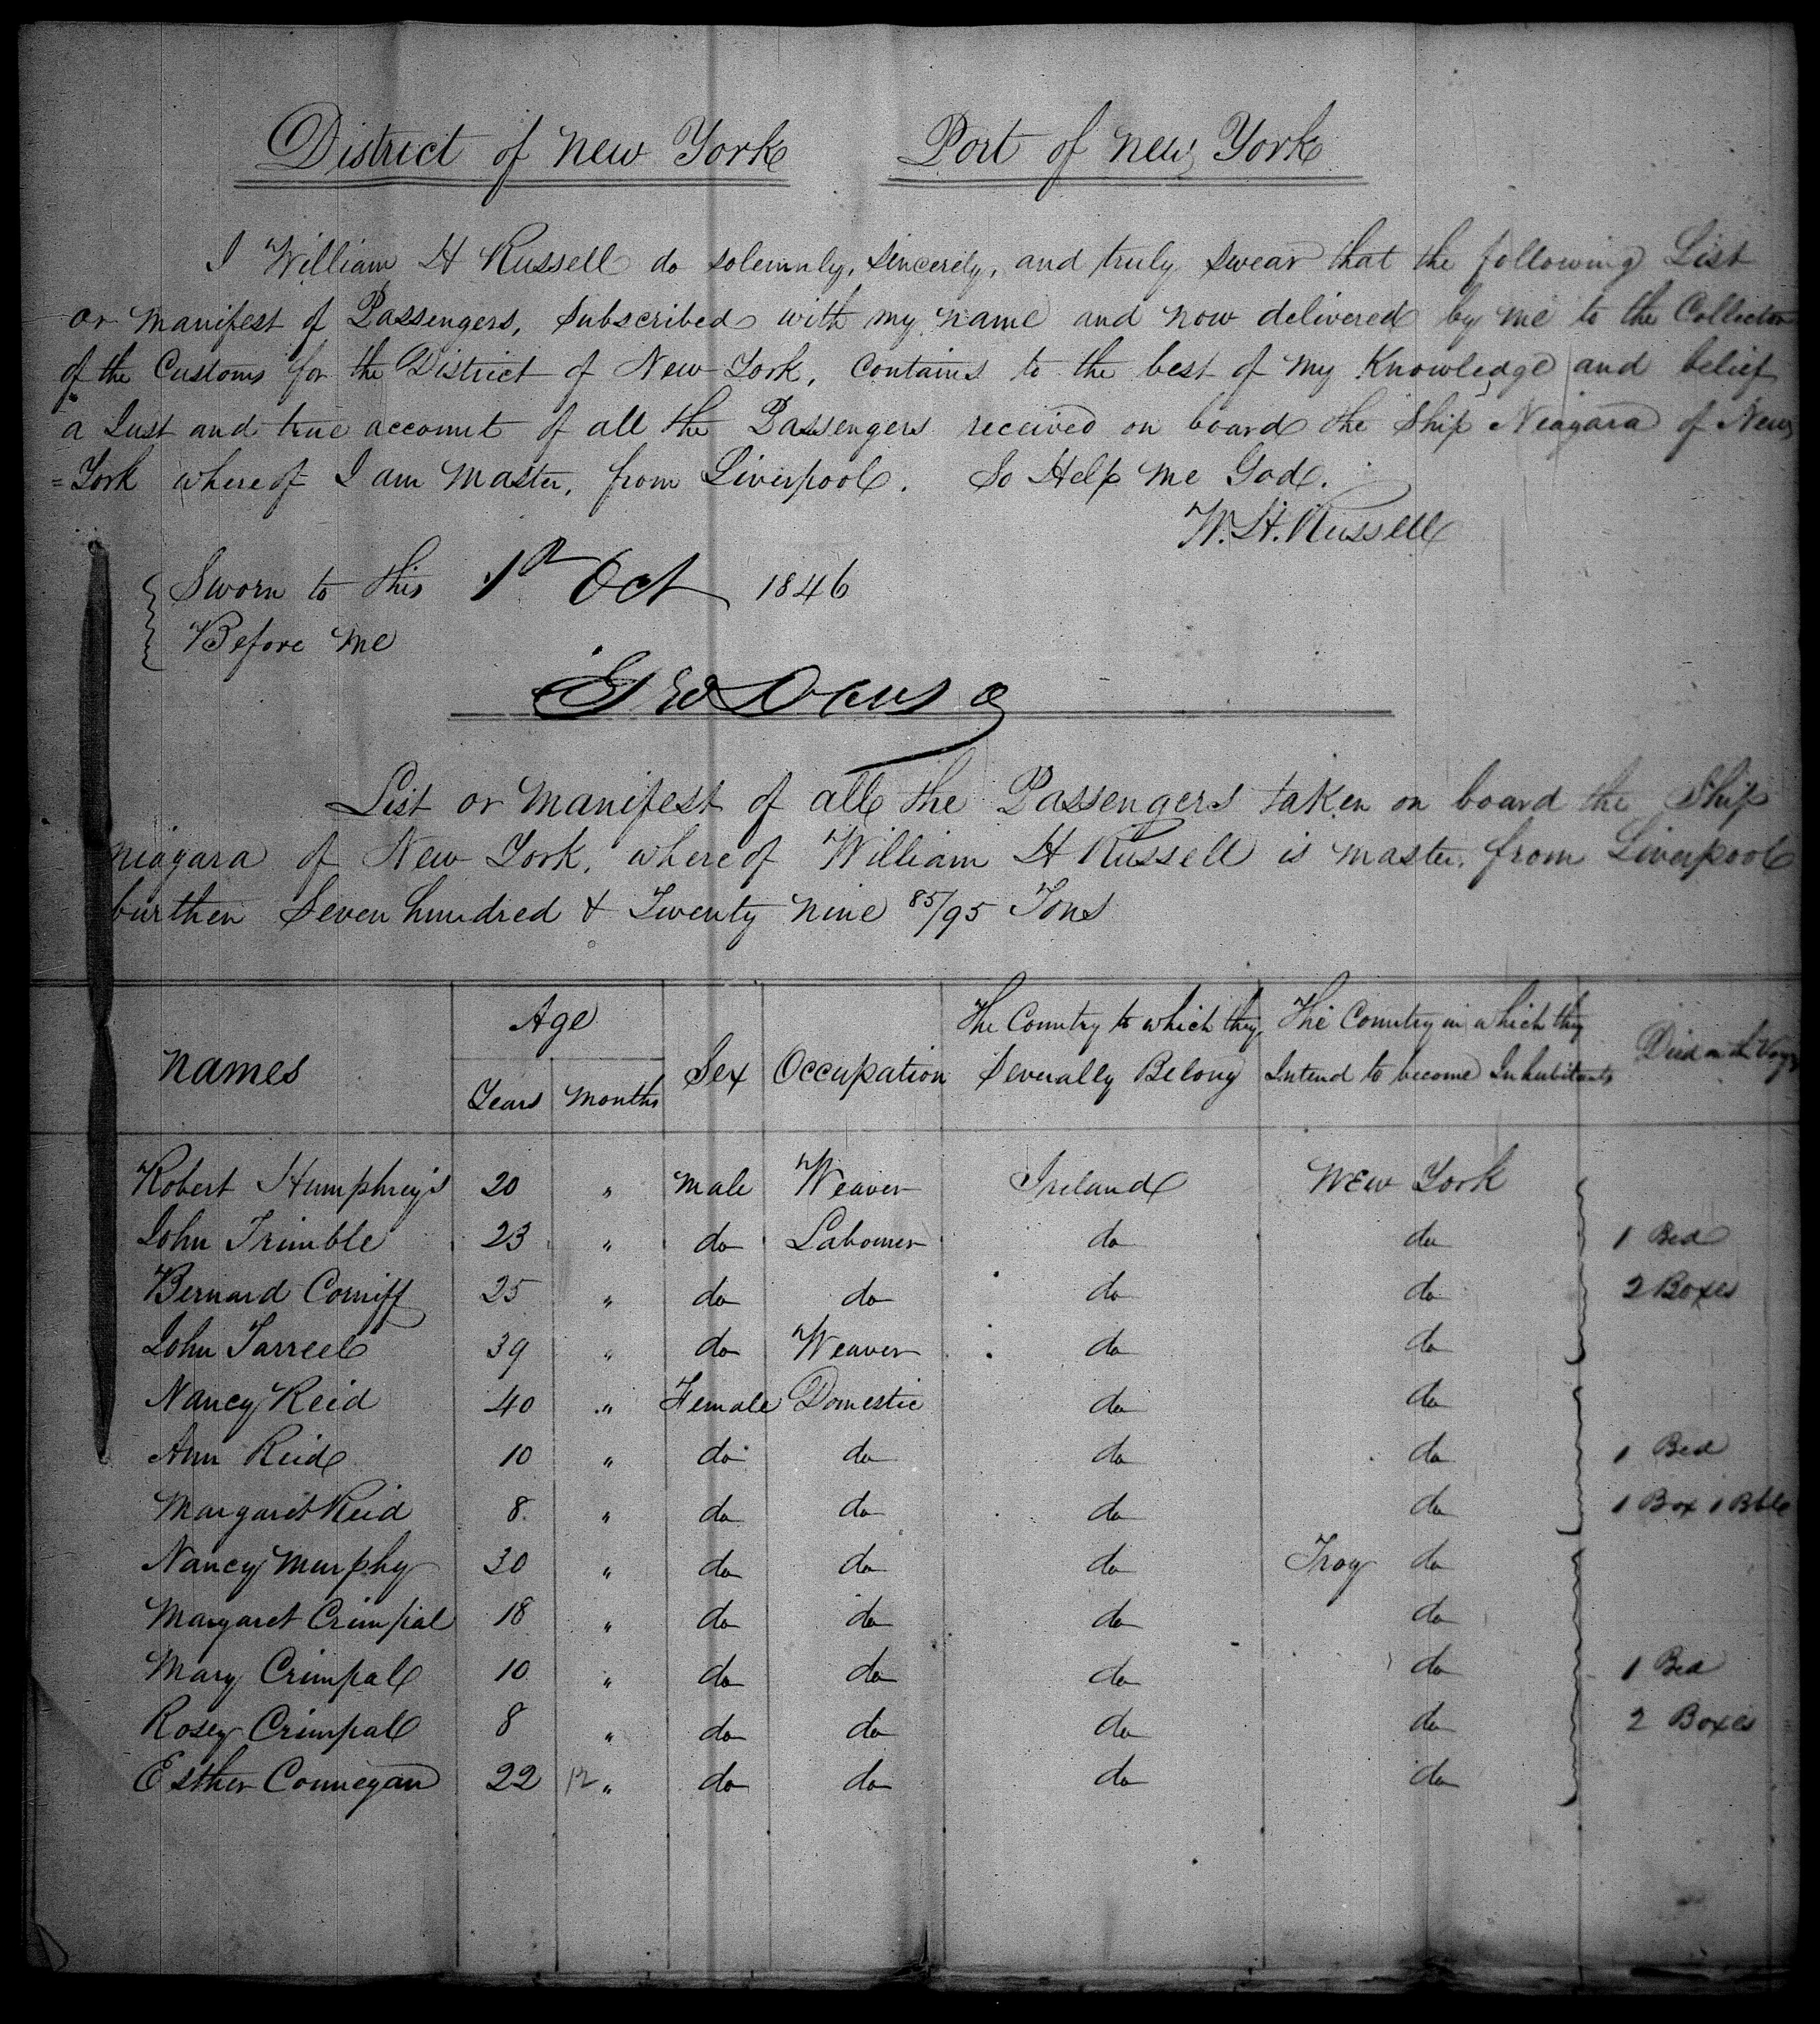 District of New York Port of New York
I William H Russell do solemnly, sincerely, and truly swear that the following List
or Manifest of Passengers, subscribed with my name and now delivered by me to the Collector
of the Customs for the District of New York, Contains to the best of my Knowledge and belief
a Just and true account of all the Passengers received on board the Ship Niagara of New
=York whereof I am Master, from Liverpool. So Help me God.
W. H. Russell
Sworn to this 1st Oct 1846
Before me
List or Manifest of all the Passengers taken on board the Ship
Niagara of New York, whereof William H Russell is master, from Liverpool
burthen Seven hundred & Twenty nine 85/95 Tons
Names Age Years Months Sex Occupation The Country to which they Severally Belong The Country in which they Intend to become Inhabitants Died on the Voyg
Robert Humphreys 20 " Male Weaver Ireland New York
John Trimble 23 " do Labourer do do 1 Bed
Bernard Corniff 25 " do do do do 2 Boxes
John Farrell 39 " do Weaver do do
Nancy Reid 40 " Female Domestic do do
Ann Reid 10 " do do do do 1 Bed
Margaret Reid 8 " do do do do 1 Box 1 Bble
Nancy Murphy 30 " do do do Troy do
Margaret Crimpal 18 " do do do do
Mary Crimpal 10 " do do do do 1 Bed
Rosey Crimpal 8 " do do do do 2 Boxes
Esther Connegan 22 12 " do do do do